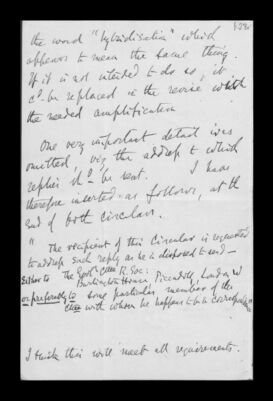 the word "hybridisation" which
appears to mean the same thing.
If it is not intended to do so, it
cd. be replaced in the revise with
the needed amplification
One very important detail was
omitted, viz the address to which
replies shd. be sent. I have
therefore inserted as follows, at the
end of both circulars.
" The recipient of this Circular is requested
to address such reply as he is disposed to send —
Either to The Evolⁿ Cttee R. Soc:
Burlington House, Piccadilly London W
or preferably to some particular member of the
Cttee with whom he happens to be in correspondence
I think this will meet all requirements.